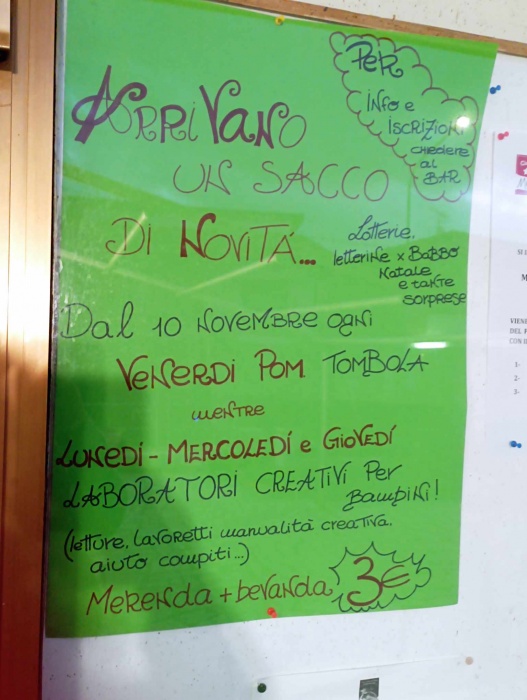 ARRIVANO
UN SACCO
DI NOVITÁ...
PER
INFO e
ISCRIZIONI
CHIEDERE
al
BAR
Lotterie,
letterine x BABBO
Natale
e tante
SORPRESE
Dal 10 NOVEMBRE OGNI
VENERDÍ POM. TOMBOLA
MENTRE
LUNEDÍ - MERCOLEDÍ e GIOVEDÍ
LABORATORI CREATIVI Per
BAMBINI!
(letture, lavoretti manualità creativa,
aiuto compiti...)
Merenda + bevanda 3€
VIENE
DEL P
1-
2-
3-